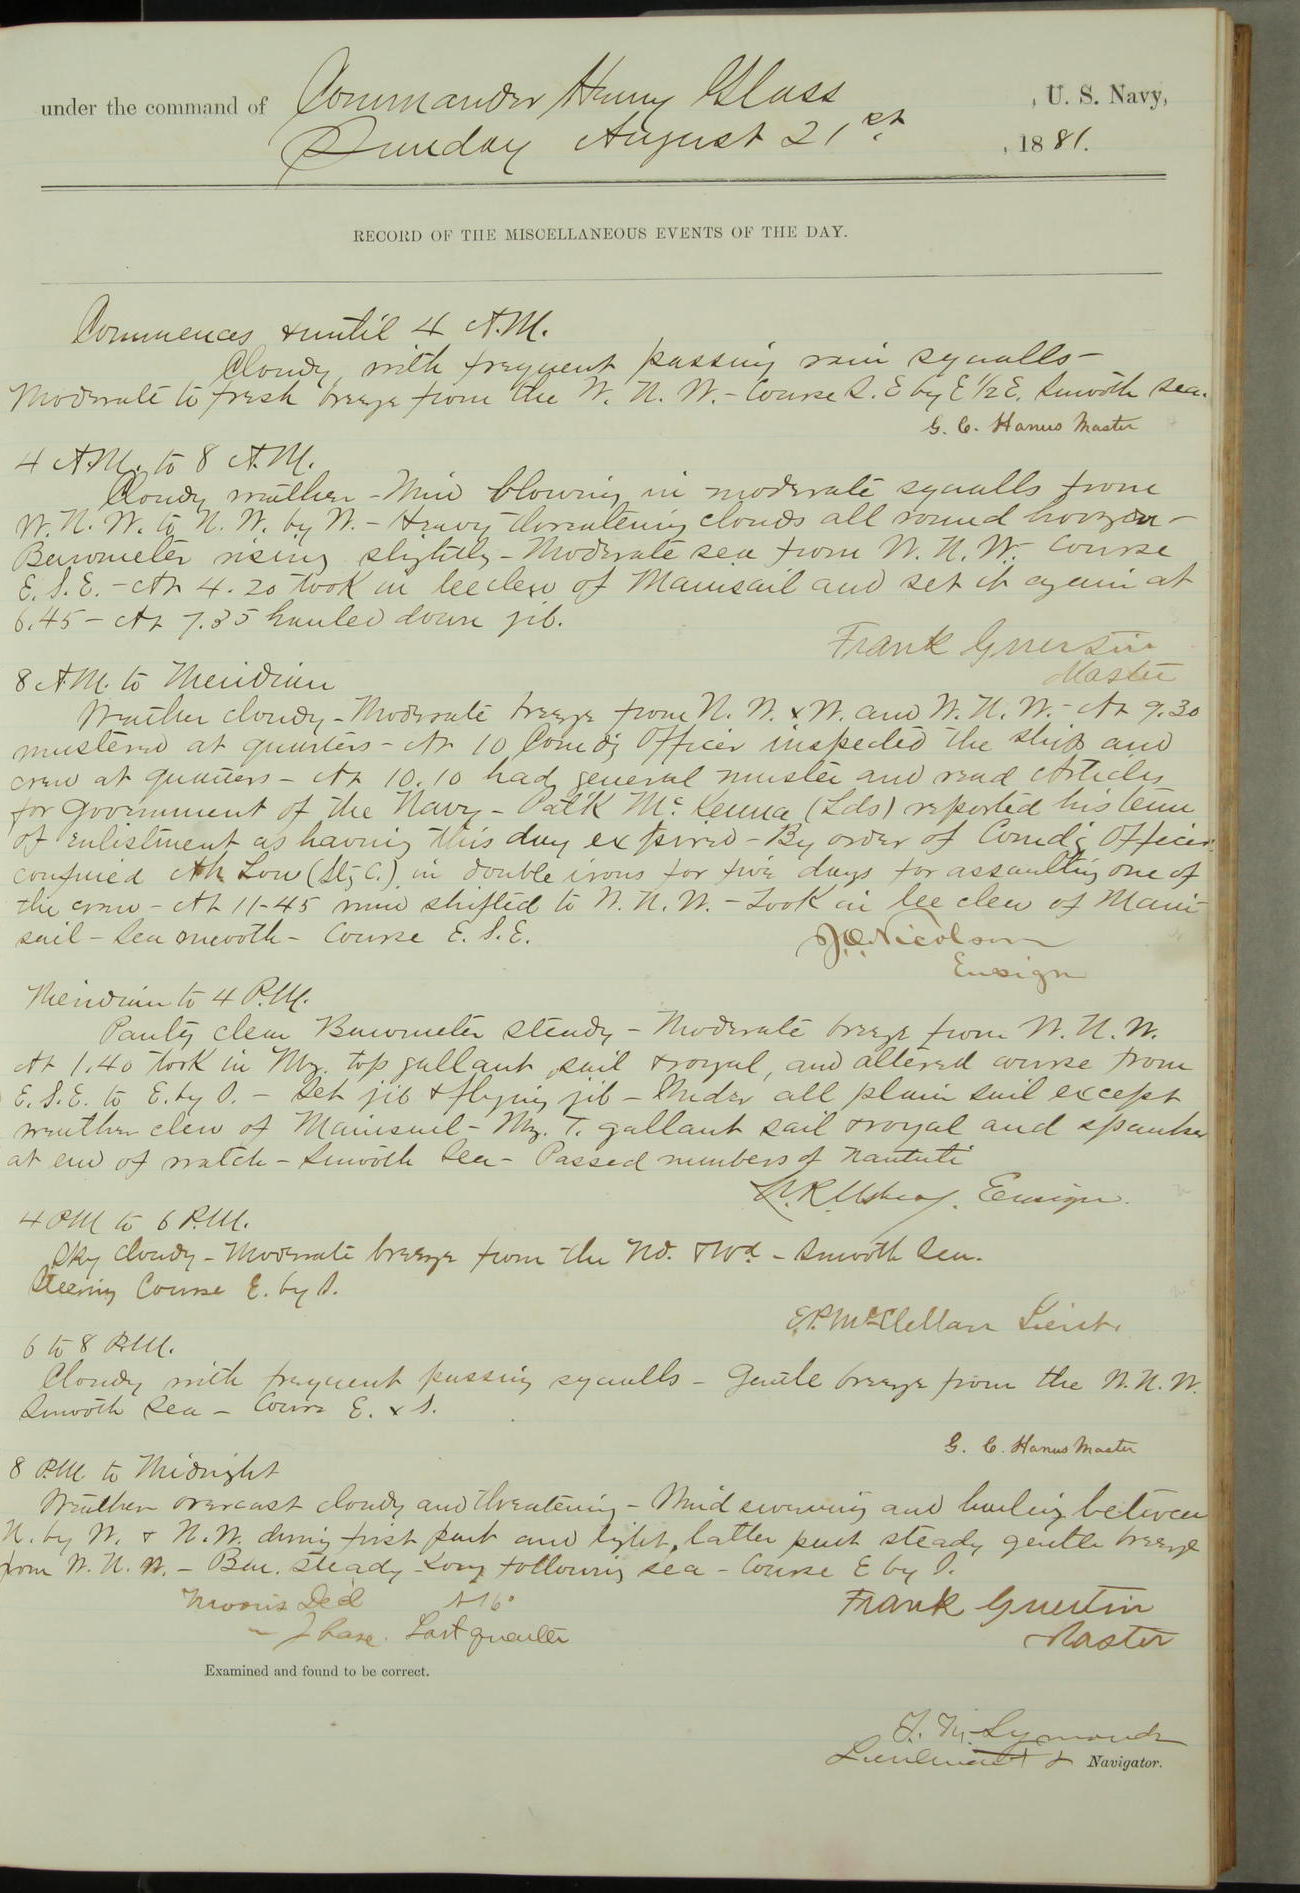 under the command of Commander Henry Glass , U. S. Navy,
Sunday August 21st. , 1881.
RECORD OF THE MISCELLANEOUS EVENTS OF THE DAY.
Commences & until 4 A.M.
Cloudy with frequent passing rain squalls -
Moderate to fresh breeze from the W. N. W. - Course S. E by E 1/2 E. Smooth sea.
G. C. Hanus Master
4 A.M. to 8 A.M.
Cloudy weather - Wind blowing in moderate squalls from
W. N. W. to N. W. by W. - Heavy threatening clouds all round horizon -
Barometer rising slightly - Moderate sea from W. N. W. Course
E. S. E. - At 4.20 took in lee clew of Mainsail and set it again at
6.45 - At 7.35 hauled down jib.
Frank Guertin
Master
8 A.M. to Meridian
Weather cloudy - Moderate breeze from N. W. x W. and W. N. W. - At 9.30
mustered at quarters - At 10 Comd'g Officer inspected the ship and
crew at quarters - At 10.10 had general muster and read Articles
for Government of the Navy - Pat'k Mc Kenna (Lds) reported his term
of enlistment as having this day expired - By order of Comd'g Officer
confined Ah Low (Stg C.) in double irons for five days for assaulting one of
the crew - At 11-45 wind shifted to W. N. W. - Took in lee clew of Main-
sail - Sea smooth - Course E. S. E.
J.O. Nicolson
Ensign
Meridian to 4 P.M.
Partly clear Barometer steady - Moderate breeze from W. N. W.
At 1.40 took in Mz. top gallant sail & royal, and altered course from
E. S. E. to E. by S. - Set jib & flying jib - Under all plain sail except
weather clew of Mainsail - Mz. T. gallant sail & royal and spanker
at end of watch - Smooth Sea - Passed numbers of Nautuli
Ensign.
4 PM to 6 P.M.
Sky cloudy - Moderate breeze from the Nd. & Wd - Smooth Sea.
Steering Course E. by S.
E.P. McClellan Lieut.
6 to 8 P.M.
Cloudy with frequent passing squalls - Gentle breeze from the W. N. W.
Smooth Sea - Course E. x S.
G. C. Hanus Master
8 P.M to Midnight
Weather overcast cloudy and threatening - Wind and hauling between
N. by W. & N.W. during first part and light, latter part steady gentle breeze
from W. N. W. - Bar. steady - Long following sea - Course E by S.
Moon's Dec'l
" Phase. Last quarter
Frank Guertin
Master
Examined and found to be correct.
F. M. Symonds
Lieutenant & Navigator.